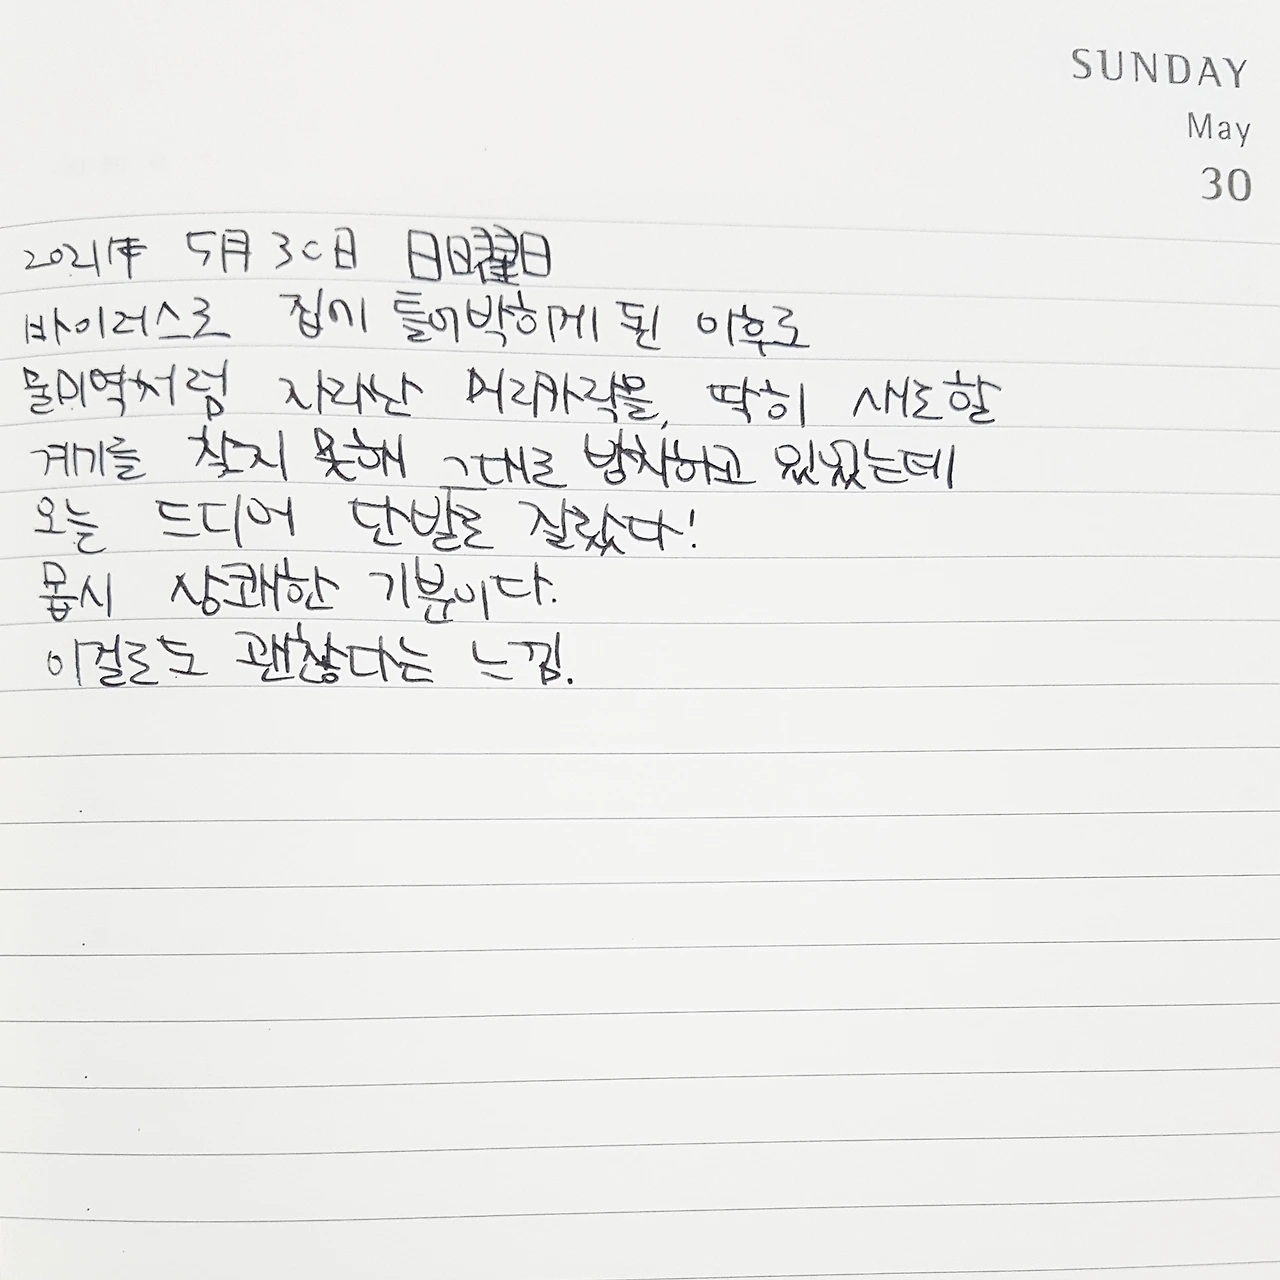 SUNDAY
May
30
2021年 5月 30日 日日曜日
바이러스로 집에 틀어박히게 된 이후로
물미역처럼 자라난 머리카락을, 딱히 새로할
계기를 찾지 못해 그대로 방치하고 있었는데
오늘 드디어 단발로 잘랐다!
몹시 상쾌한 기분이다.
이걸로도 괜찮다는 느낌.